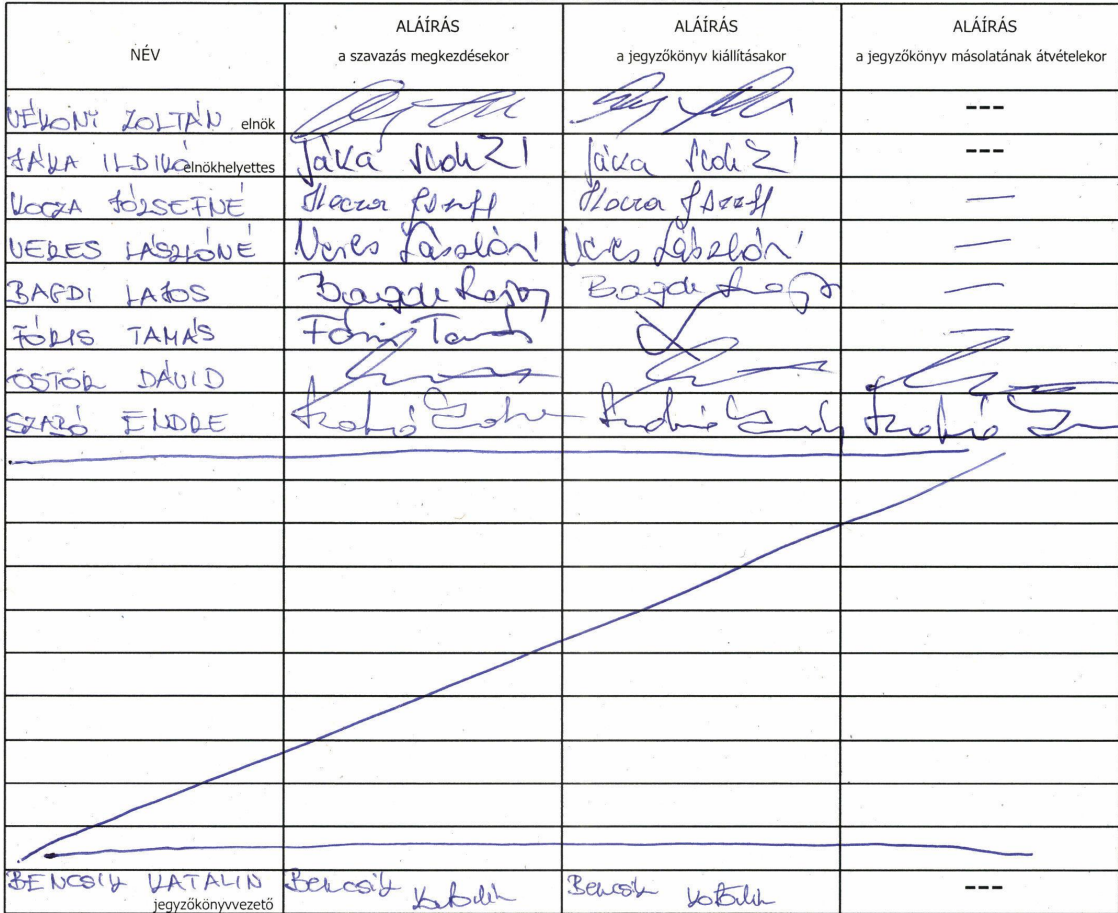 NÉV
ALÁÍRÁS
a szavazás megkezdésekor
ALÁÍRÁS
a jegyzőkönyv kiállításakor
ALÁÍRÁS
a jegyzőkönyv másolatának átvételekor
VÉKONY ZOLTÁN elnök
---
JÁKA ILDIKÓ elnökhelyettes
Jáka
Jáka
---
KOCZA JÓZSEFNÉ
—
VERES LÁSZLÓNÉ
Veres Lászlóné
Veres Lászlóné
—
BAGDI LAJOS
Bagdi Lajos
Bagdi Lajos
—
FÓRIS TAMÁS
Fóris Tamás
—
ÖSTÖR DÁVID
SZABÓ ENDRE
Szabó Endre
Szabó Endre
Szabó
BENCSIK KATALIN jegyzőkönyvvezető
Bencsik Katalin
Bencsik Katalin
---